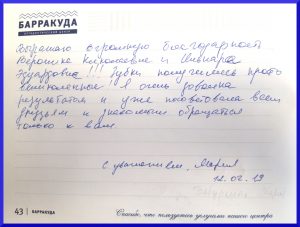 БАРРАКУДА
СТОМАТОЛОГИЧЕСКИЙ ЦЕНТР
Выражаю огромную благодарность
Веронике Николаевне и
Эдуардовне!!! Зубки получились просто
великолепные! Я очень довольна
результатом и уже посоветовала всем
друзьям и знакомым обращаться
только к вам.
С уважением, Мария
12.02.19
43 | БАРРАКУДА
Спасибо, что пользуетесь услугами нашего центра